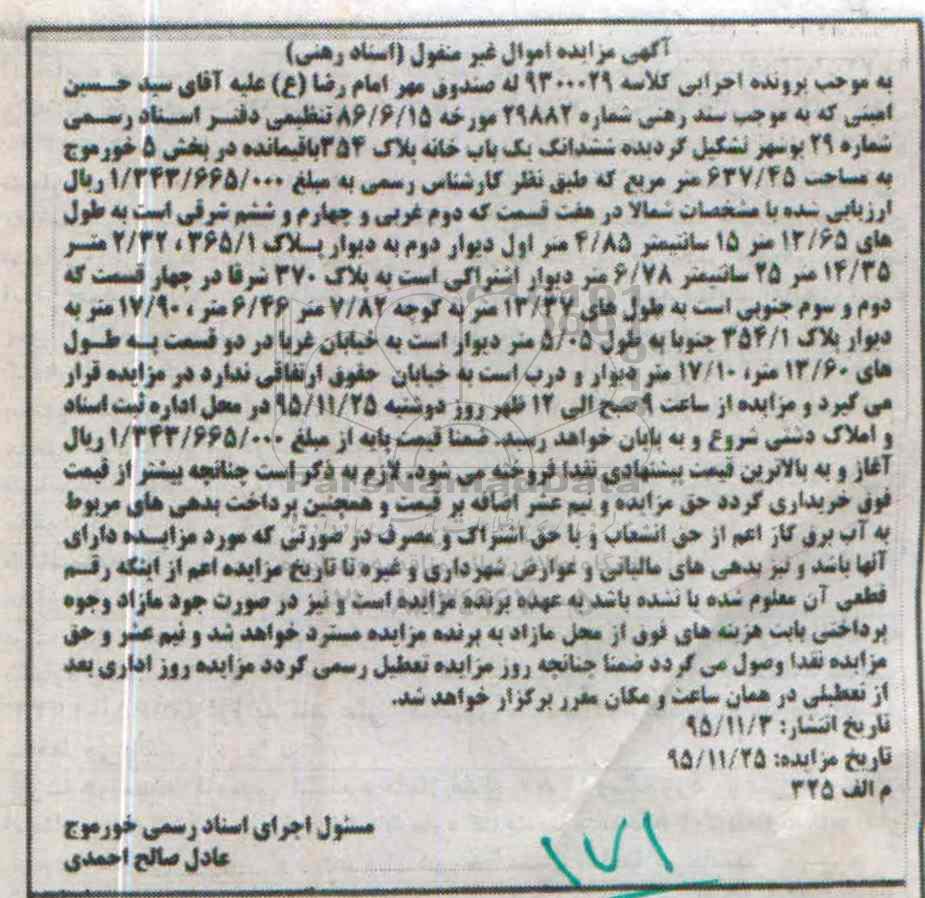 آگهی مزایده اموال غیر منقول (اسناد رهنی)
به موجب پرونده اجرایی کلاسه ۹۳۰۰۰۲۹ له صندوق مهر امام رضا (ع) علیه آقای سید حسین
امینی که به موجب سند رهنی شماره ۲۹۸۸۲ مورخه ۸۶/۶/۱۵ تنظیمی دفتر اسناد رسمی
شماره ۲۹ بوشهر تشکیل گردیده ششدانگ یک باب خانه پلاک ۳۵۴ باقیمانده در بخش ۵ خورموج
به مساحت ۶۳۷/۴۵ متر مربع که طبق نظر کارشناس رسمی به مبلغ ۱/۳۴۳/۶۶۵/۰۰۰ ریال
ارزیابی شده با مشخصات شمالا در هفت قسمت که دوم غربی و چهارم و ششم شرقی است به طول
های ۱۲/۶۵ متر ۱۵ سانتیمتر ۴/۸۵ متر اول دیوار دوم به دیوار پلاک ۳۶۵/۱ ، ۲/۳۲ متر
۱۴/۳۵ متر ۲۵ سانتیمتر ۶/۷۸ متر دیوار اشتراکی است به پلاک ۳۷۰ شرقا در چهار قسمت که
دوم و سوم جنوبی است به طول های ۱۳/۳۷ متر به کوچه ۷/۸۲ متر ۶/۴۶ متر ، ۱۷/۹۰ متر به
دیوار پلاک ۳۵۴/۱ جنوبا به طول ۵/۰۵ متر دیوار است به خیابان غربا در دو قسمت به طول
های ۱۳/۶۰ متر، ۱۷/۱۰ متر دیوار و درب است به خیابان حقوق ارتفاقی ندارد در مزایده قرار
می گیرد و مزایده از ساعت ۹ صبح الی ۱۲ ظهر روز دوشنبه ۹۵/۱۱/۲۵ در محل اداره ثبت اسناد
و املاک دشتی شروع و به پایان خواهد رسید. ضمنا قیمت پایه از مبلغ ۱/۳۴۳/۶۶۵/۰۰۰ ریال
آغاز و به بالاترین قیمت پیشنهادی نقدا فروخته می شود. لازم به ذکر است چنانچه بیشتر از قیمت
فوق خریداری گردد حق مزایده و نیم عشر اضافه بر قیمت و همچنین پرداخت بدهی های مربوط
به آب برق گاز اعم از حق انشعاب و یا حق اشتراک و مصرف در صورتی که مورد مزایده دارای
آنها باشد و نیز بدهی های مالیاتی و عوارض شهرداری و غیره تا تاریخ مزایده اعم از اینکه رقم
قطعی آن معلوم شده یا نشده باشد به عهده برنده مزایده است و نیز در صورت جود مازاد وجوه
پرداختی بابت هزینه های فوق از محل مازاد به برنده مزایده مسترد خواهد شد و نیم عشر و حق
مزایده نقدا وصول می گردد ضمنا چنانچه روز مزایده تعطیل رسمی گردد مزایده روز اداری بعد
از تعطیلی در همان ساعت و مکان مقرر برگزار خواهد شد.
تاریخ انتشار: ۹۵/۱۱/۳
تاریخ مزایده: ۹۵/۱۱/۲۵
م الف ۳۲۵
مسئول اجرای اسناد رسمی خورموج
عادل صالح احمدی
۱۷۱
ParsNamadData